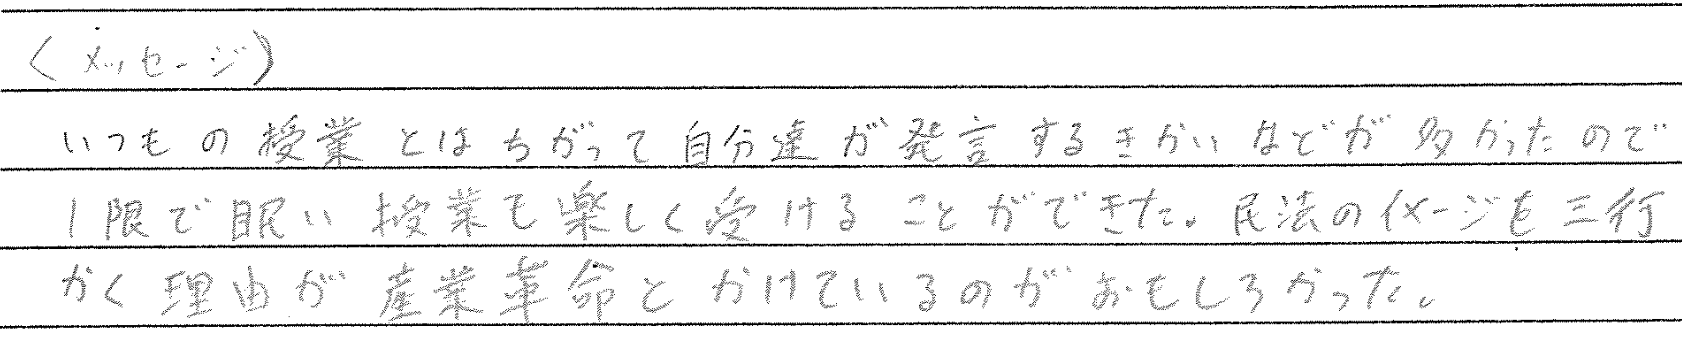 〈メッセージ〉
いつもの授業とはちがって自分達が発言するきかいなどが多かったので
1限で眠い授業も楽しく受けることができた。民法のイメージを三行
かく理由が産業革命とかけているのがおもしろかった。